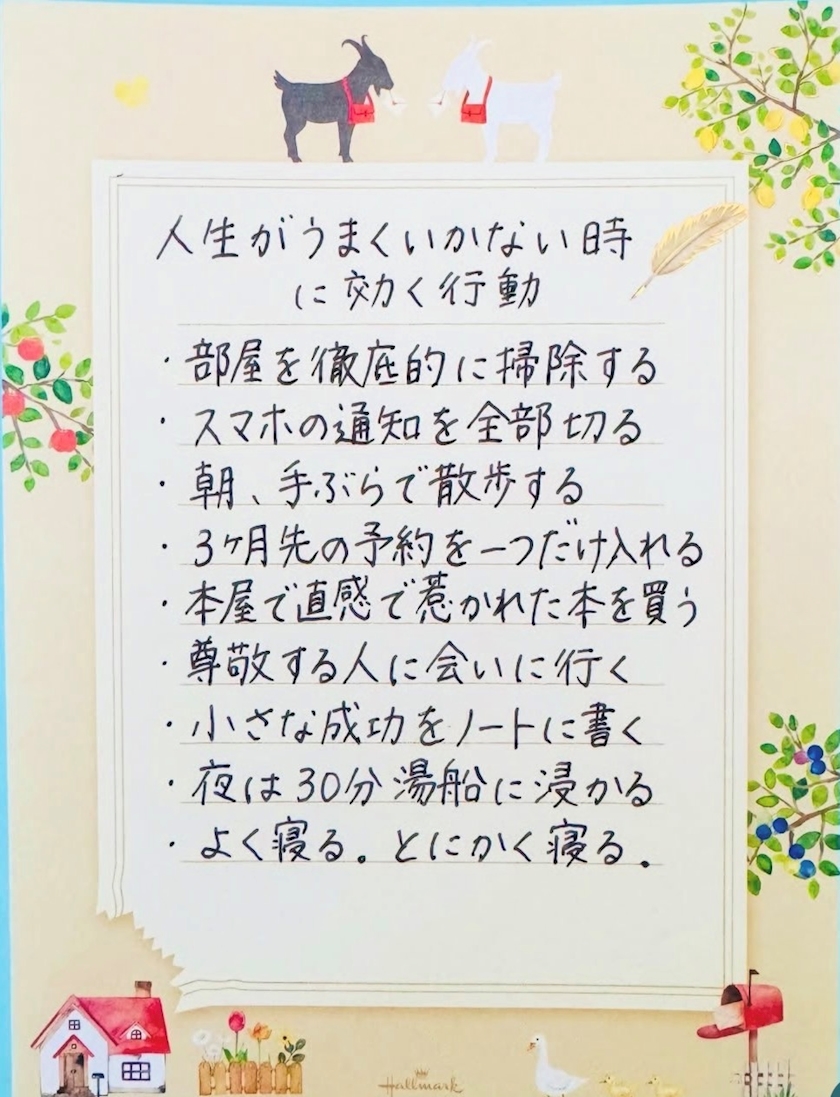 人生がうまくいかない時
に効く行動
・部屋を徹底的に掃除する
・スマホの通知を全部切る
・朝、手ぶらで散歩する
・3ヶ月先の予約を一つだけ入れる
・本屋で直感で惹かれた本を買う
・尊敬する人に会いに行く
・小さな成功をノートに書く
・夜は30分湯船に浸かる
・よく寝る。とにかく寝る。
Hallmark